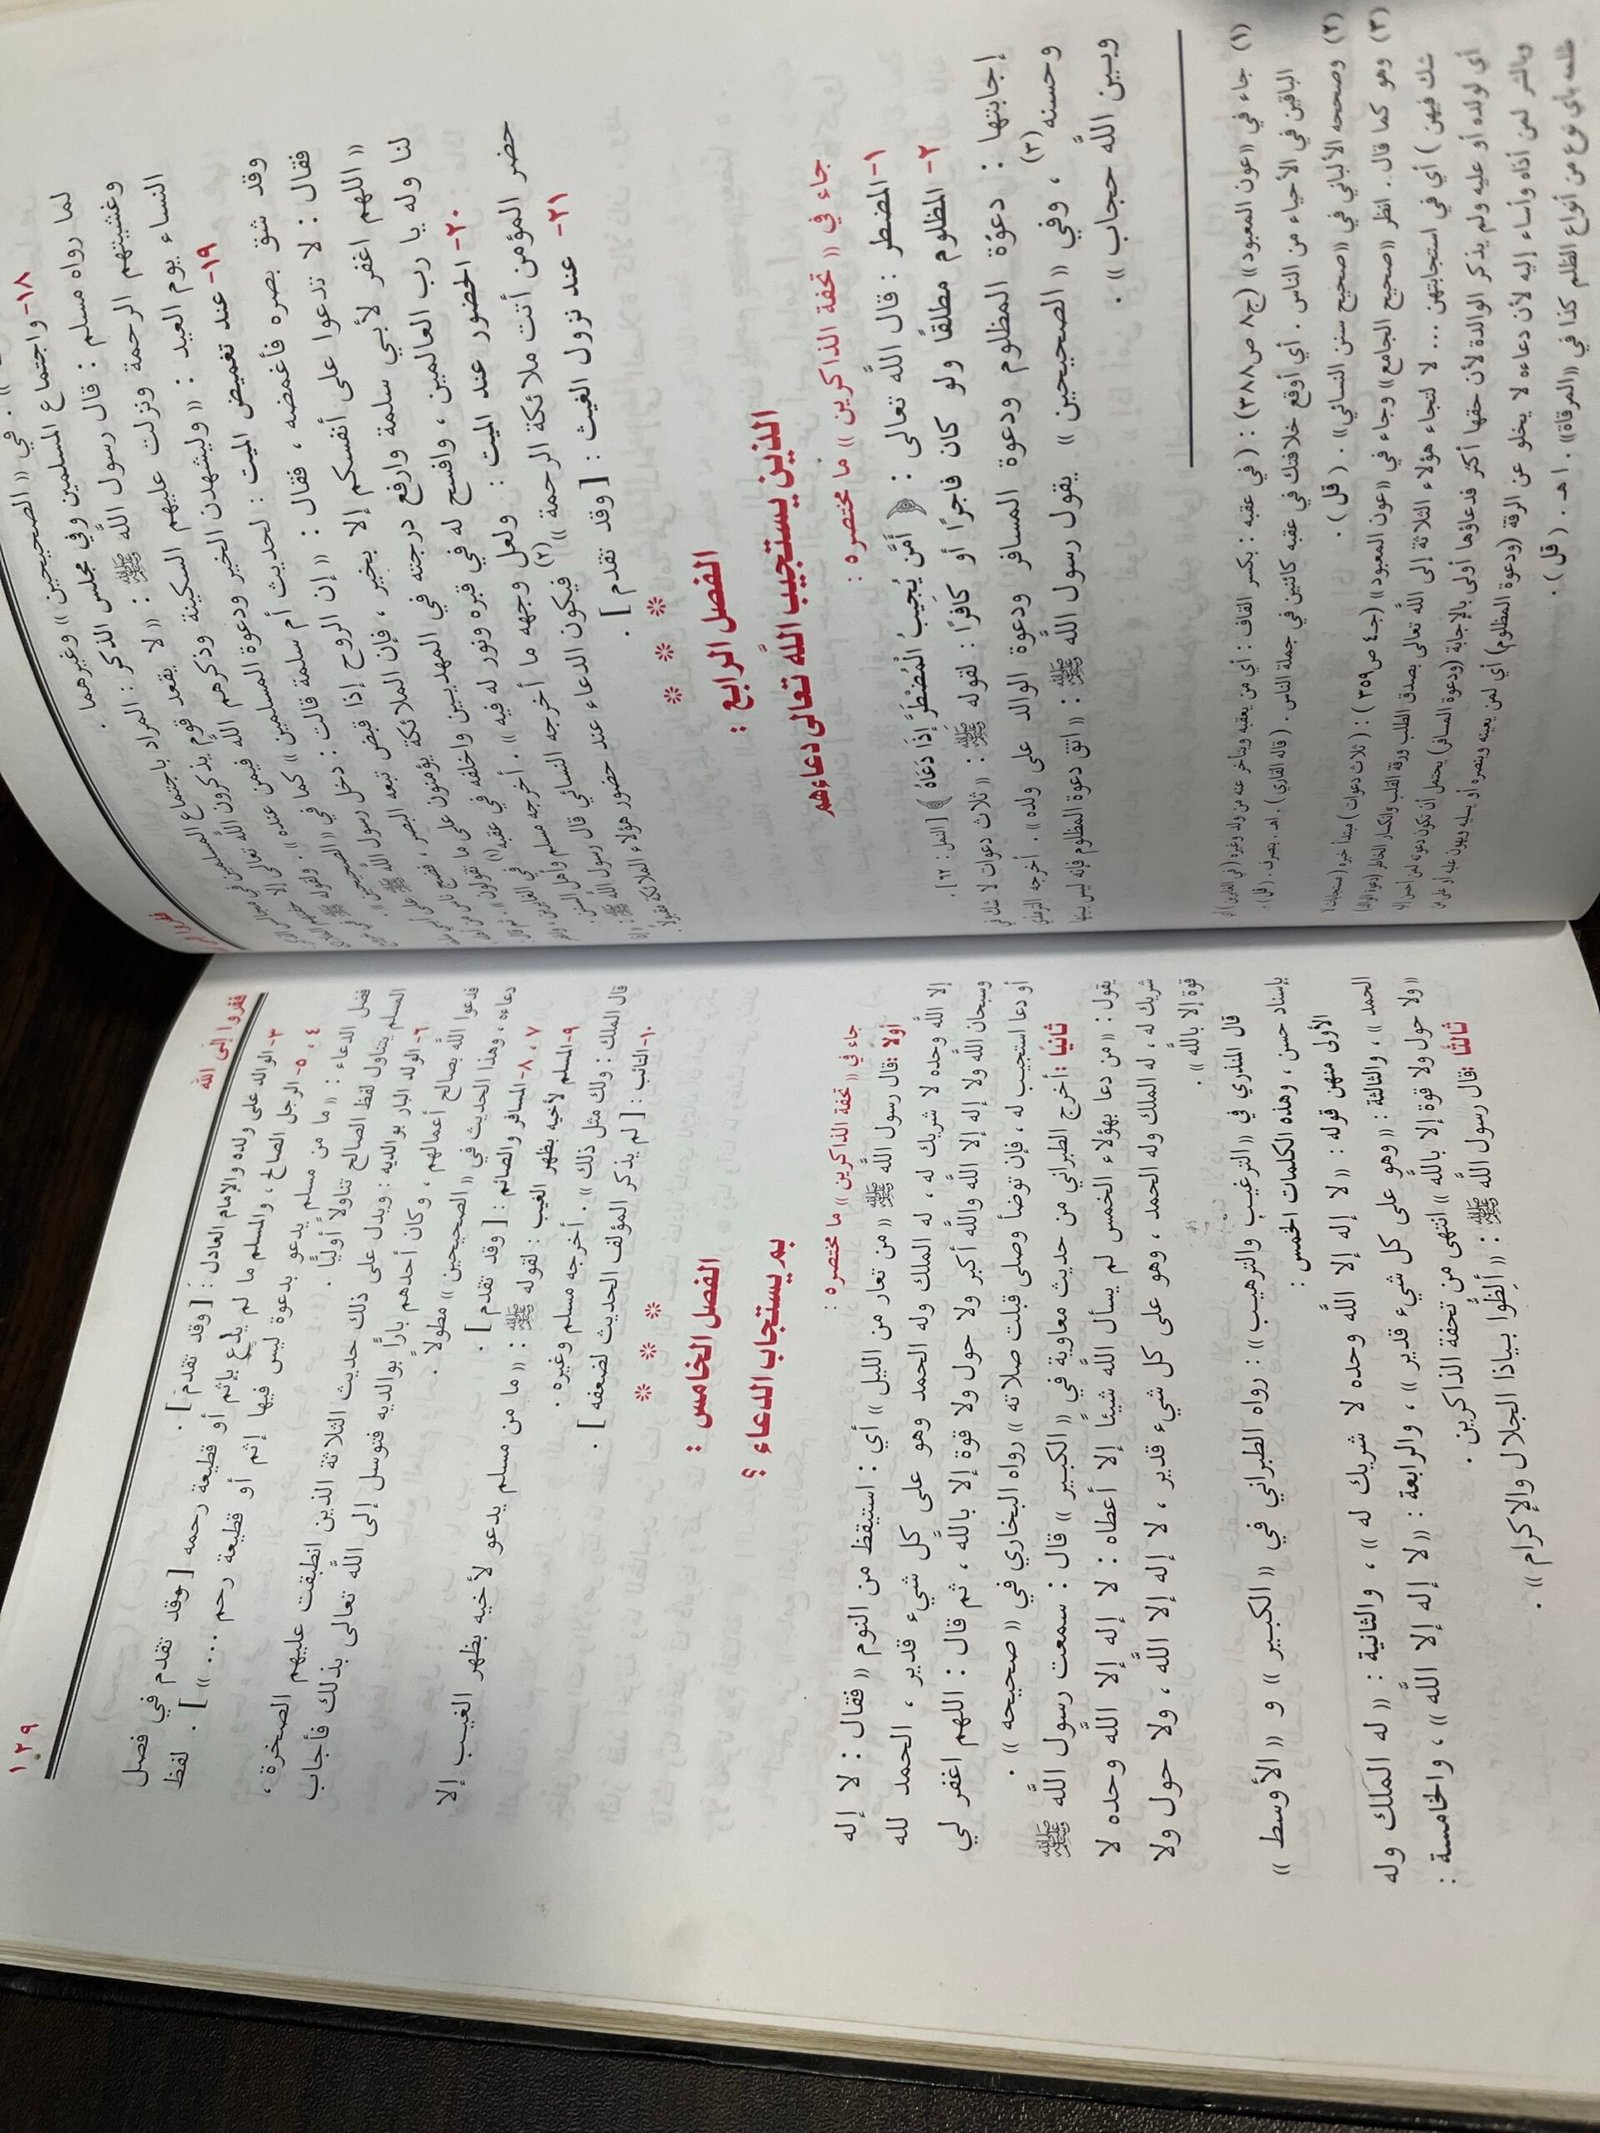 ١٨- واجتماع المسلمين في مجالس
لما رواه مسلم : قال رسول اللَّه ﷺ : « لا يقعد قوم يذكرون اللَّه تعالى إلا
وغشيتهم الرحمة ونزلت عليهم السكينة وذكرهم اللَّه فيمن عنده » . ولقوله ﷺ في
النساء يوم العيد : « وليشهدن الخير ودعوة المسلمين » كما في الصحيحين
١٩- عند تغميض الميت : لحديث أم سلمة قالت : دخل رسول اللَّه ﷺ على أبي سلمة
وقد شق بصره فأغمضه ، فقال : « إن الروح إذا قبض تبعه البصر ، فضج ناس من
فقال : لا تدعوا على أنفسكم إلا بخير ، فإن الملائكة يؤمنون على ما تقولون » . ثم قال :
« اللهم اغفر لأبي سلمة وارفع درجته في المهديين واخلفه في عقبه (١) في الغابرين ، واغفر
لنا وله يا رب العالمين ، وافسح له في قبره ونور له فيه » . أخرجه مسلم وأهل السنن .
٢٠- الحضور عند الميت : ولعل وجهه ما أخرجه النسائي قال رسول اللَّه ﷺ : « إذا
حضر المؤمن أتت ملائكة الرحمة »(٢) فيكون الدعاء عند حضور هؤلاء الملائكة مقبولاً .
٢١- عند نزول الغيث : [ وقد تقدم ] .
* * *
الفصل الرابع :
الذين يستجيب اللَّه تعالى دعاءهم
جاء في « تحفة الذاكرين » ما مختصره :
١- المضطر : قال اللَّه تعالى : ﴿ أَمَّن يُجِيبُ الْمُضْطَرَّ إِذَا دَعَاهُ ﴾ [ النمل : ٦٢ ] .
٢- المظلوم مطلقًا ولو كان فاجرًا أو كافرًا : لقوله ﷺ : « ثلاث دعوات لا شك في
إجابتها : دعوة المظلوم ودعوة المسافر ودعوة الوالد على ولده » . أخرجه الترمذي
وحسنه (٣) ، وفي « الصحيحين » يقول رسول اللَّه ﷺ : « اتق دعوة المظلوم فإنه ليس بينها
وبين اللَّه حجاب » .
(١) جاء في «عون المعبود» (ج٨ ص٣٨٨) : ( في عقبه : بكسر القاف : أي من يعقبه ويتأخر عنه من ولد وغيره ( في الغابرين ) أي
الباقين في الأحياء من الناس . أي أوقع خلافتك في عقبه كائنين في جملة الناس . ( قاله القاري ) . اهـ . بتصرف . ( قل ) .
(٢) وصححه الألباني في «صحيح سنن النسائي» . ( قل ) .
(٣) وهو كما قال . انظر «صحيح الجامع» وجاء في «عون المعبود» (جـ٤ ص٣٥٩) : ( ثلاث دعوات ) مبتدأ خبره ( مستجابات لا
شك فيهن ) أي في استجابتهن ... لا لتجاء هؤلاء الثلاثة إلى اللَّه تعالى بصدق الطلب ورقة القلب وانكسار الخاطر (دعوة الوالد)
أي لولده أو عليه ولم يذكر الوالدة لأن حقها أكثر فدعاؤها أولى بالإجابة (ودعوة المسافر) يحتمل أن تكون دعوته لمن أحسن إليه
وبالشر لمن أذاه وأساء إليه لأن دعاءه لا يخلو عن الرقة (ودعوة المظلوم) أي لمن يعينه وينصره أو يسليه ويهون عليه أو على من
ظلمه بأي نوع من أنواع الظلم كذا في «المرقاة» . اهـ . ( قل ) .
ففروا إلى الله
١٢٩
٣- الوالد على ولده والإمام العادل : [ وقد تقدم ] .
٤ ، ٥- الرجل الصالح ، والمسلم ما لم يدع بإثم أو قطيعة رحمه [ وقد تقدم في فصل
فضل الدعاء : « ما من مسلم يدعو بدعوة ليس فيها إثم أو قطيعة رحم ... » ] . لفظ
المسلم يتناول لفظ الصالح تناولاً أوليًّا .
٦- الولد البار بوالديه : ويدل على ذلك حديث الثلاثة الذين انطبقت عليهم الصخرة ،
فدعوا اللَّه بصالح أعمالهم ، وكان أحدهم بارًّا بوالديه فتوسل إلى اللَّه تعالى بذلك فأجاب
دعاءه ، وهذا الحديث في «الصحيحين» مطولاً .
٧ ، ٨- المسافر والصائم : [ وقد تقدم ] .
٩- المسلم لأخيه بظهر الغيب : لقوله ﷺ : « ما من مسلم يدعو لأخيه بظهر الغيب إلا
قال الملك : ولك مثل ذلك » . أخرجه مسلم وغيره .
١٠- التائب : [ لم يذكر المؤلف الحديث لضعفه ] .
* * *
الفصل الخامس :
بم يستجاب الدعاء ؟
جاء في « تحفة الذاكرين » ما مختصره :
أولاً : قال رسول اللَّه ﷺ « من تعار من الليل » أي : استيقظ من النوم « فقال : لا إله
إلا اللَّه وحده لا شريك له ، له الملك وله الحمد وهو على كل شيء قدير ، الحمد لله
وسبحان اللَّه ولا إله إلا اللَّه واللَّه أكبر ولا حول ولا قوة إلا باللَّه ، ثم قال : اللهم اغفر لي
أو دعا استجيب له ، فإن توضأ وصلى قبلت صلاته » رواه البخاري في « صحيحه » .
ثانيًا : أخرج الطبراني من حديث معاوية في « الكبير » قال : سمعت رسول اللَّه ﷺ
يقول : « من دعا بهؤلاء الخمس لم يسأل اللَّه شيئًا إلا أعطاه : لا إله إلا اللَّه وحده لا
شريك له ، له الملك وله الحمد ، وهو على كل شيء قدير ، لا إله إلا اللَّه ، ولا حول ولا
قوة إلا باللَّه » .
قال المنذري في «الترغيب والترهيب» : رواه الطبراني في « الكبير » و « الأوسط »
بإسناد حسن ، وهذه الكلمات الخمس :
الأولى منهن قوله : « لا إله إلا اللَّه وحده لا شريك له » ، والثانية : « له الملك وله
الحمد » ، والثالثة : « وهو على كل شيء قدير » ، والرابعة : « لا إله إلا اللَّه » ، والخامسة :
« ولا حول ولا قوة إلا باللَّه » انتهى من تحفة الذاكرين .
ثالثًا : قال رسول اللَّه ﷺ : « ألِظُّوا بياذا الجلال والإكرام » .